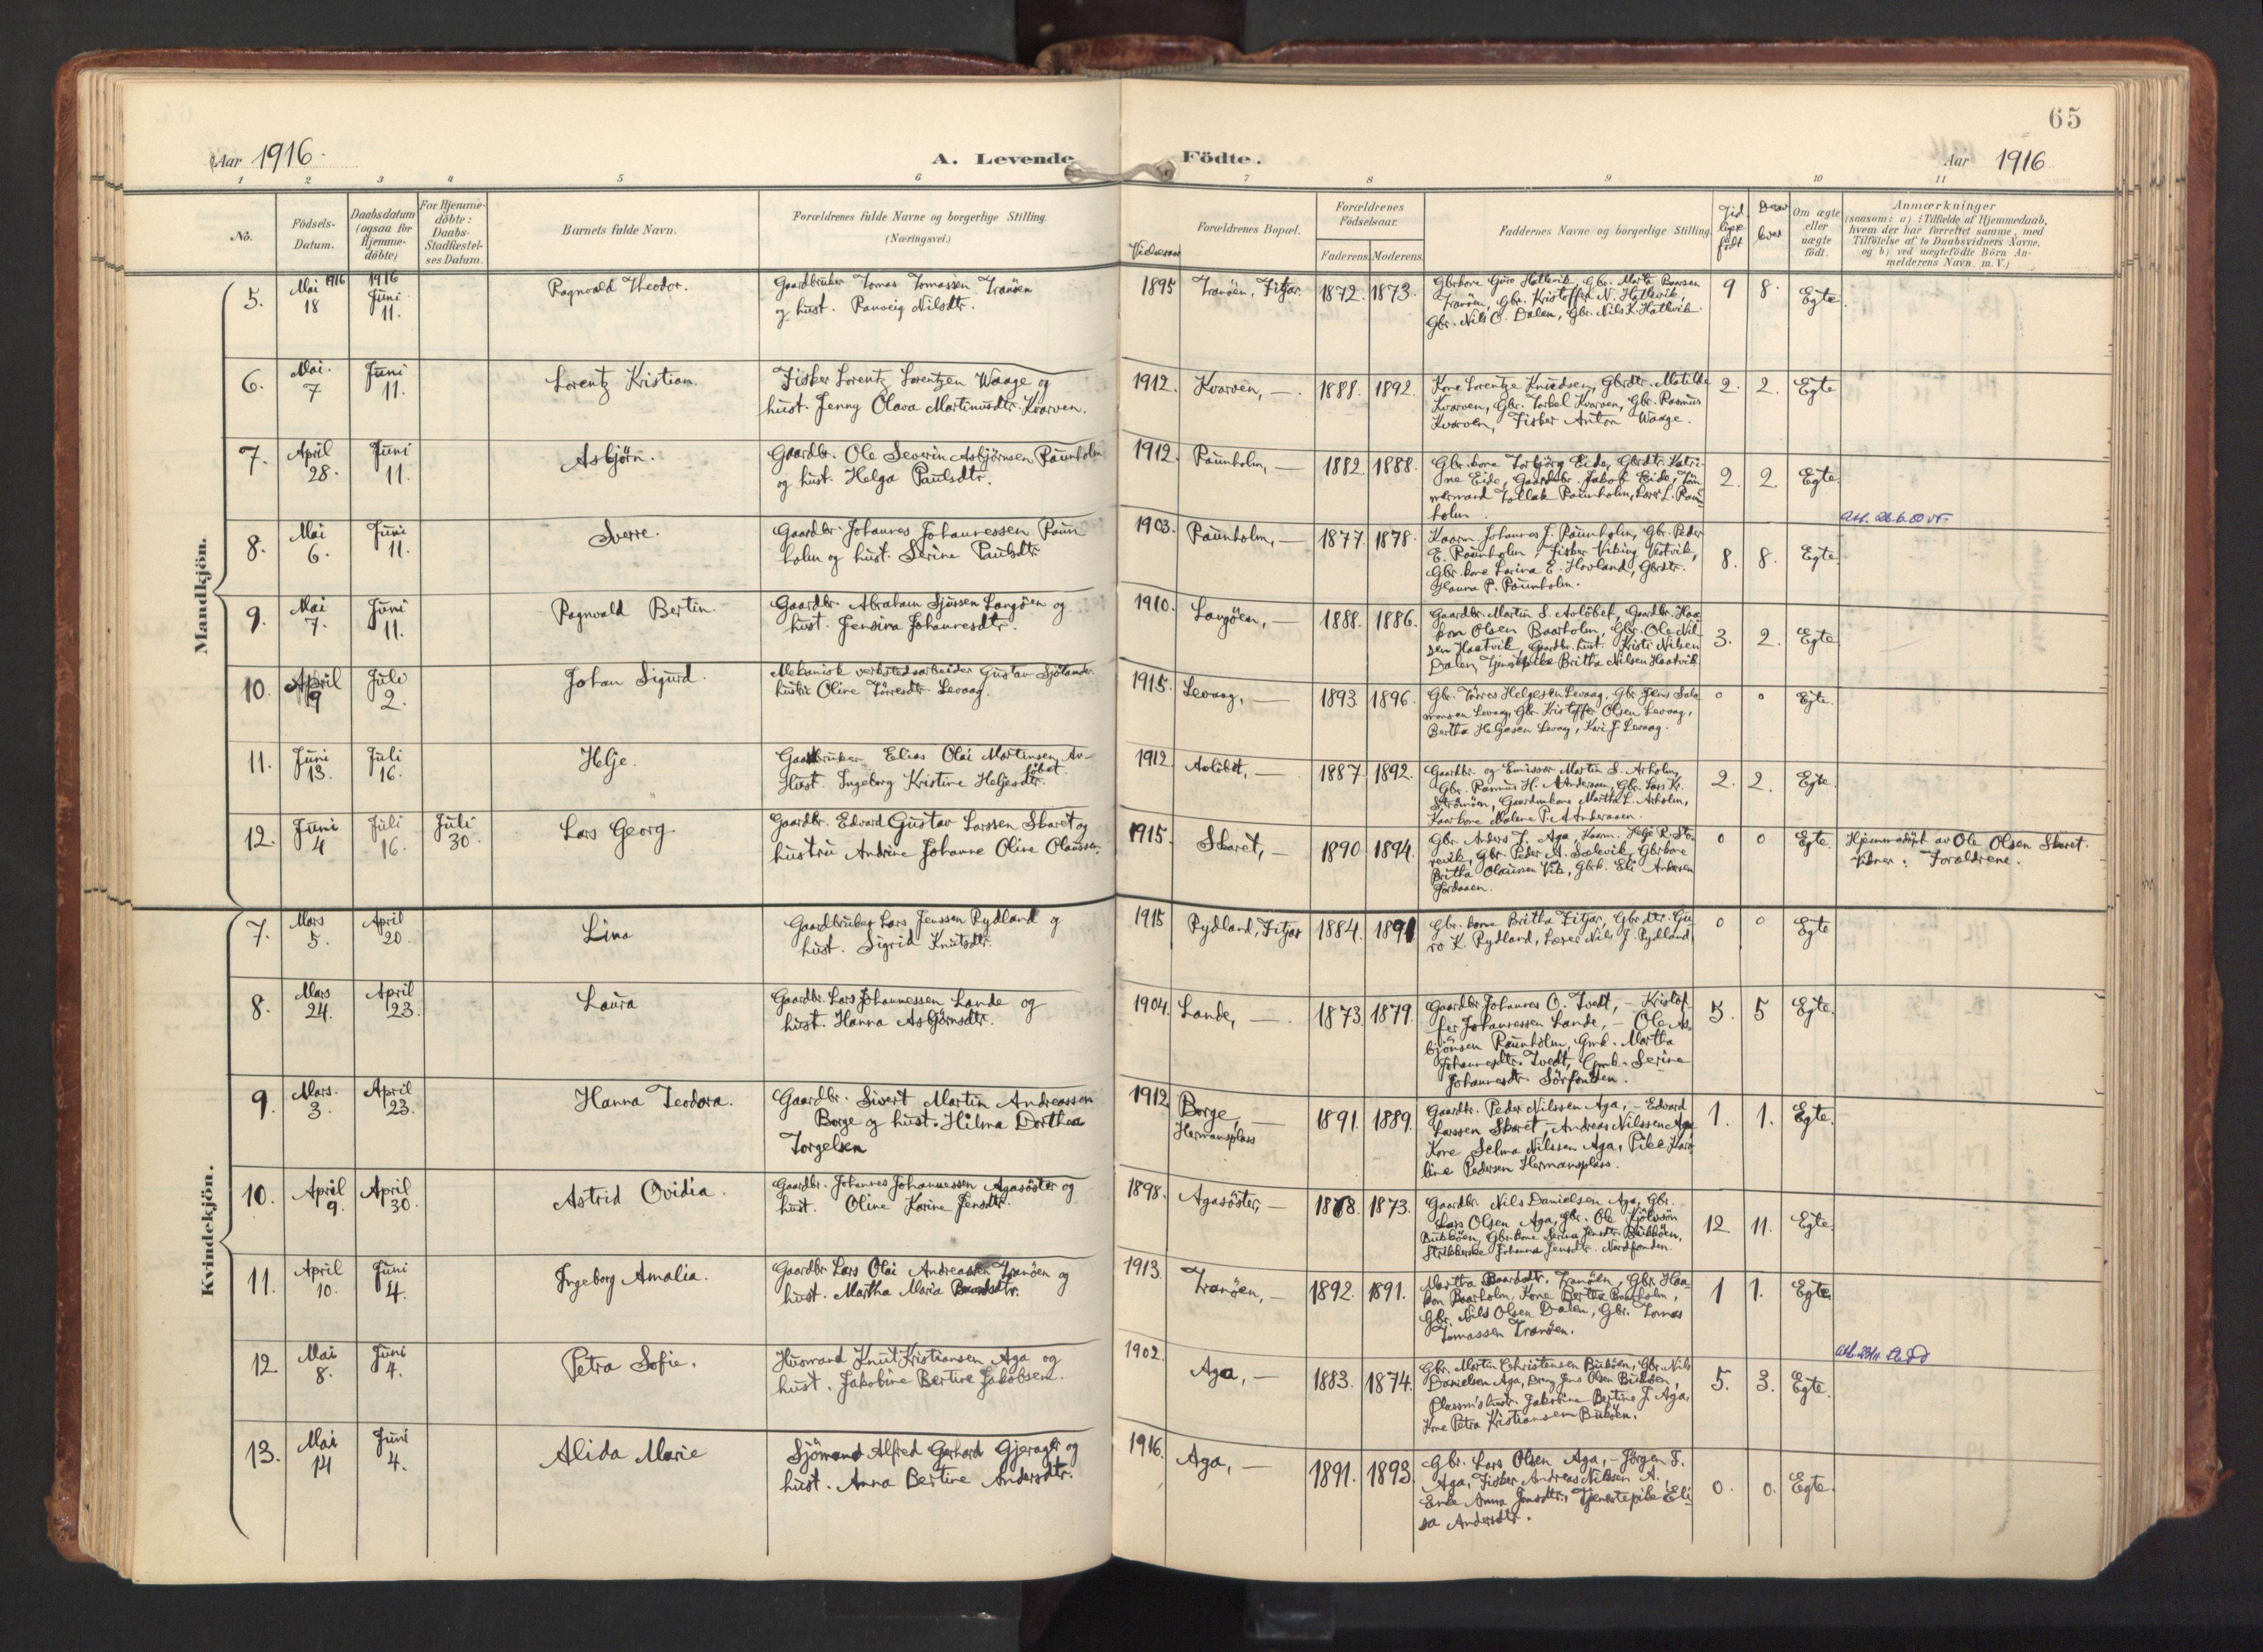 65
Aar 1916.
A. Levende Födte.
Aar 1916
1 2 3 4 5 6 7 8 9 10 11
No.
Födsels-
Datum.
Daabsdatum
(ogsaa for
Hjemme-
döbte)
For Hjemme-
döbte:
Daabs-
Stadfæstel-
ses Datum.
Barnets fulde Navn.
Forældrenes fulde Navne og borgerlige Stilling.
(Næringsvei.)
Forældrenes Bopæl.
Forældrenes
Födselsaar.
Faderens. Moderens.
Faddernes Navne og borgerlige Stilling
Tid
ligere
födt
Derav
lever
Om ægte
eller
uægte
födt.
Anmærkninger
(saasom: a) i Tilfælde af Hjemmedaab,
hvem der har forrettet samme, med
Tilföielse af to Daabsvidners Navne,
og b) ved uægtefödte Börn An-
melderens Navn m. V.)
Mandkjön.
5.
Mai 1916
18
1916
Juni
11.
Ragnvald Theodor.
Gaardbruker Tomas Tomassen Tranöen
og hust. Ranveig Nilsdtr.
1895
Tranöen, Fitjar.
1872. 1873.
Gbrkone Guro Hatlevik, Gbr. Marta Baarsen
Tranöen, Gbr. Kristoffer N. Hatlevik,
Gbr. Nils O. Dalen, Gbr. Nils K. Hatlevik.
9 8. Egte.
6.
Mai.
7
Juni
11.
Lorentz Kristian.
Fisker Lorentz Lorentzen Waage og
hust. Jenny Olava Martinusdtr. Kvarven.
1912.
Kvarven, —.
1888. 1892.
Kone Lorentze Knudsen, Gbrdtr. Matilde
Kvarven, Gbr. Torkel Kvarven, Gbr. Rasmus
Kvarven, Fisker Anton Waage.
2. 2. Egte
7.
April
28.
Juni
11.
Asbjörn.
Gaardbr. Ole Severin Asbjörnsen Raunholm
og hust. Helga Paulsdtr.
1912.
Raunholm, —
1882. 1888.
Gbr. kone Torbjörg Eide, Gbrdtr. Katri-
ne Eide, Gaardbr. Jakob Eide, Töm
mermand Tollak Raunholm, Lars L. Raun
holm.
2. 2. Egte.
8.
Mai
6.
Juni
11.
Sverre.
Gaardbr. Johannes Johannessen Raun
holm og hust. Serine Paulsdtr.
1903.
Raunholm, —
1877. 1878.
Kaarm Johannes J. Raunholm, Gbr. Peder
E. Raunholm, Fisker Viking Vestvik,
Gbr. kone Larina E. Hovland, Gbrdtr.
Laura P. Raunholm.
8. 8. Egte.
9.
Mai
7.
Juni
11.
Ragnvald Bertin.
Gaardbr. Abraham Sjursen Langöen og
hust. Jensina Johannesdtr.
1910.
Langöen, —
1888. 1886.
Gaardbr. Martin S. Avlöbet, Gaardbr. Haa
kon Olsen Baarholm, Gbr. Ole Nil
sen Haatvik, Gaardbr. hust. Kristi Nilsen
Dalen, Tjenstpike Britha Nilsen Haatvik
3. 2. Egte
10.
April
19
Juli
2.
Johan Sigurd.
Mekanisk verkstedsarbeider Gustav Sjölander
hustr. Oline Törresdtr. Levaag.
1915.
Levaag, —
1893. 1896.
Gbr. Törres Helgesen Levaag, Gbr. Jens Salo
monsen Levaag, Gbr. Kristoffer Olsen Levaag,
Bertha Helgesen Levaag, Kari J. Levaag.
0 0 Egte.
11.
Juni
13.
Juli
16.
Helje.
Gaardbruker Elias Olai Martinsen Av-
löbet.
Hust. Ingeborg Kristine Heljesdtr.
1912
Avlöbet, —
1887. 1892.
Gaardbr. og Emissær Martin S. Arholm,
Gbr. Rasmus H. A Andersen, Gbr. Lars K.
Strömöen, Gaardmkone Martha L. Arholm,
Kaarkone Malene P. A Andersen.
2. 2. Egte.
12.
Juni
4
Juli
16.
Juli
30.
Lars Georg
Gaardbr. Edvard Gustav Larssen Skaret og
hustru Andrine Johanne Oline Olaussen.
1915.
Skaret, —
1890. 1894.
Gbr. Anders J. Aga, Kaarm. Helje R. Sto-
revik, Gbr. Peder A. Sælevik, Gbrkone
Britha Olaussen Vik, Gbrk. Eli Andersen
0 0 Egte.
Hjemmedöpt av Ole Olsen Skaret.
Vidner: Forældrene.
Kvindekjön.
7.
Mars
5.
April
20.
Lina
Gaardbruker Lars Jenssen Rydland og
hust. Sigrid Knutsdtr.
1915
Rydland, Fitjar
1884. 1891
Gbr. kone Britha Fitjar, Gbr dtr. Gu
ro K. Rydland, Lærer Nils J. Rydland
0 0 Egte
8.
Mars
24.
April
23.
Laura
Gaardbr. Lars Johannessen Lande og
hust. Hanna Asbjörnsdtr.
1904.
Lande, —
1873. 1879.
Gaardbr. Johannes O. Tvedt, — Kristof-
fer Johannessen Lande, — Ole As
björnsen Raunholm, Gmk. Martha
Johannesdtr. Tvedt, Gmk. Serine
Johannesdtr Sörfonden.
5. 5 Egte.
9.
Mars.
3.
April
23.
Hanna Teodora.
Gaardbr. Sivert Martin Andreassen
Borge og hust. Hilma Dorthea
Torgelsen
1912
Borge, —
Hermansplass
1891. 1889.
Gaardbr. Peder Nilssen Aga, — Edvard
Larssen Skaret, — Andreas Nilssen Aga
Kone Selma Nilssen Aga, Pike Karo
line Pedersen Hermansplass.
1. 1. Egte.
10.
April
9.
April
30.
Astrid Ovidia.
Gaardbr. Johannes Johannessen Agasöster og
hust. Oline Karine Jensdtr.
1898.
Agasöster, —
1873.
Gaardbr. Nils Danielsen Aga, Gbr.
Lars Olsen Aga, Gbr. Ole Kjölvsön
Bukköen, Gbr. kone Serina Jensdtr. Bukköen,
Strikkerske Johanna Jensdtr. Nordfonden.
12 11. Egte.
11.
April
10.
Juni
4.
Ingeborg Amalia.
Gaardbr Lars Olai Andreassen Tranöen og
hust. Martha Maria Baardsdtr.
1913.
Tranöen, —
1892. 1891.
Martha Baardsdtr. Tranöen, Gbr. Haa-
kon Baarholm, Kone Bertha Baarholm,
Gbr. Nils Olsen Dalen, Gbr. Tomas
Tomassen Tranöen.
1 1. Egte.
12
Mai
8.
Juni
4.
Petra Sofie.
Husmand Knut Kristiansen Aga og
hust. Jakobine Bertine Jakobsen.
1902.
Aga, —
1883. 1874.
Gbr. Martin Christensen Buköen, Gbr. Nils
Danielsen Aga, Dreng Jens Olsen Buköen,
Plassm's hustr. Jakobine Bertine J. Aga,
Kone Petra Kristiansen Buköen.
5. 3. Egte.
13.
Mai
14
Juni
4.
Alida Marie
Sjömand Alfred Gerhard Gjerager og
hust. Anna Bertine Andersdtr.
1916.
Aga, —
1891. 1893.
Gbr. Lars Olsen Aga, — Jörgen J.
Aga, Fisker Andreas Nilssen A.,
Enke Anna Jensdtr., Tjenestepike Eli-
sa Andersdtr.
0. 0. Egte.